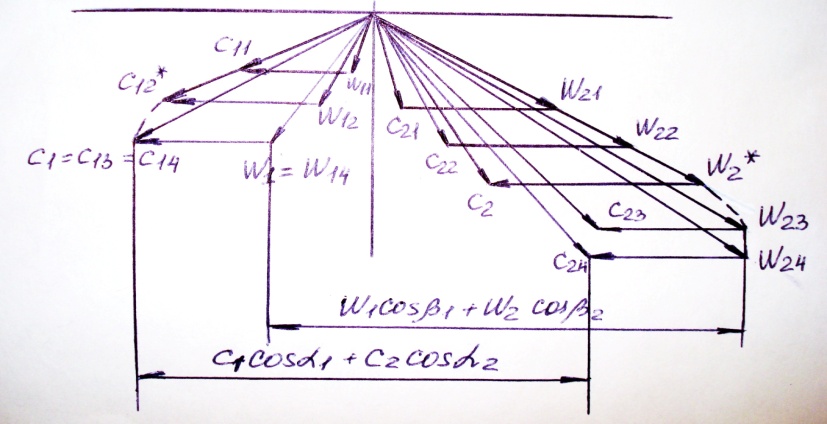 C11
C12*
W11
W12
C1=C13=C14
W1=W14
C21
W21
C22
W22
C2
W2*
C23
W23
C24
W24
W1cosβ1+W2 cosβ2
C1cosα1+C2cosα2